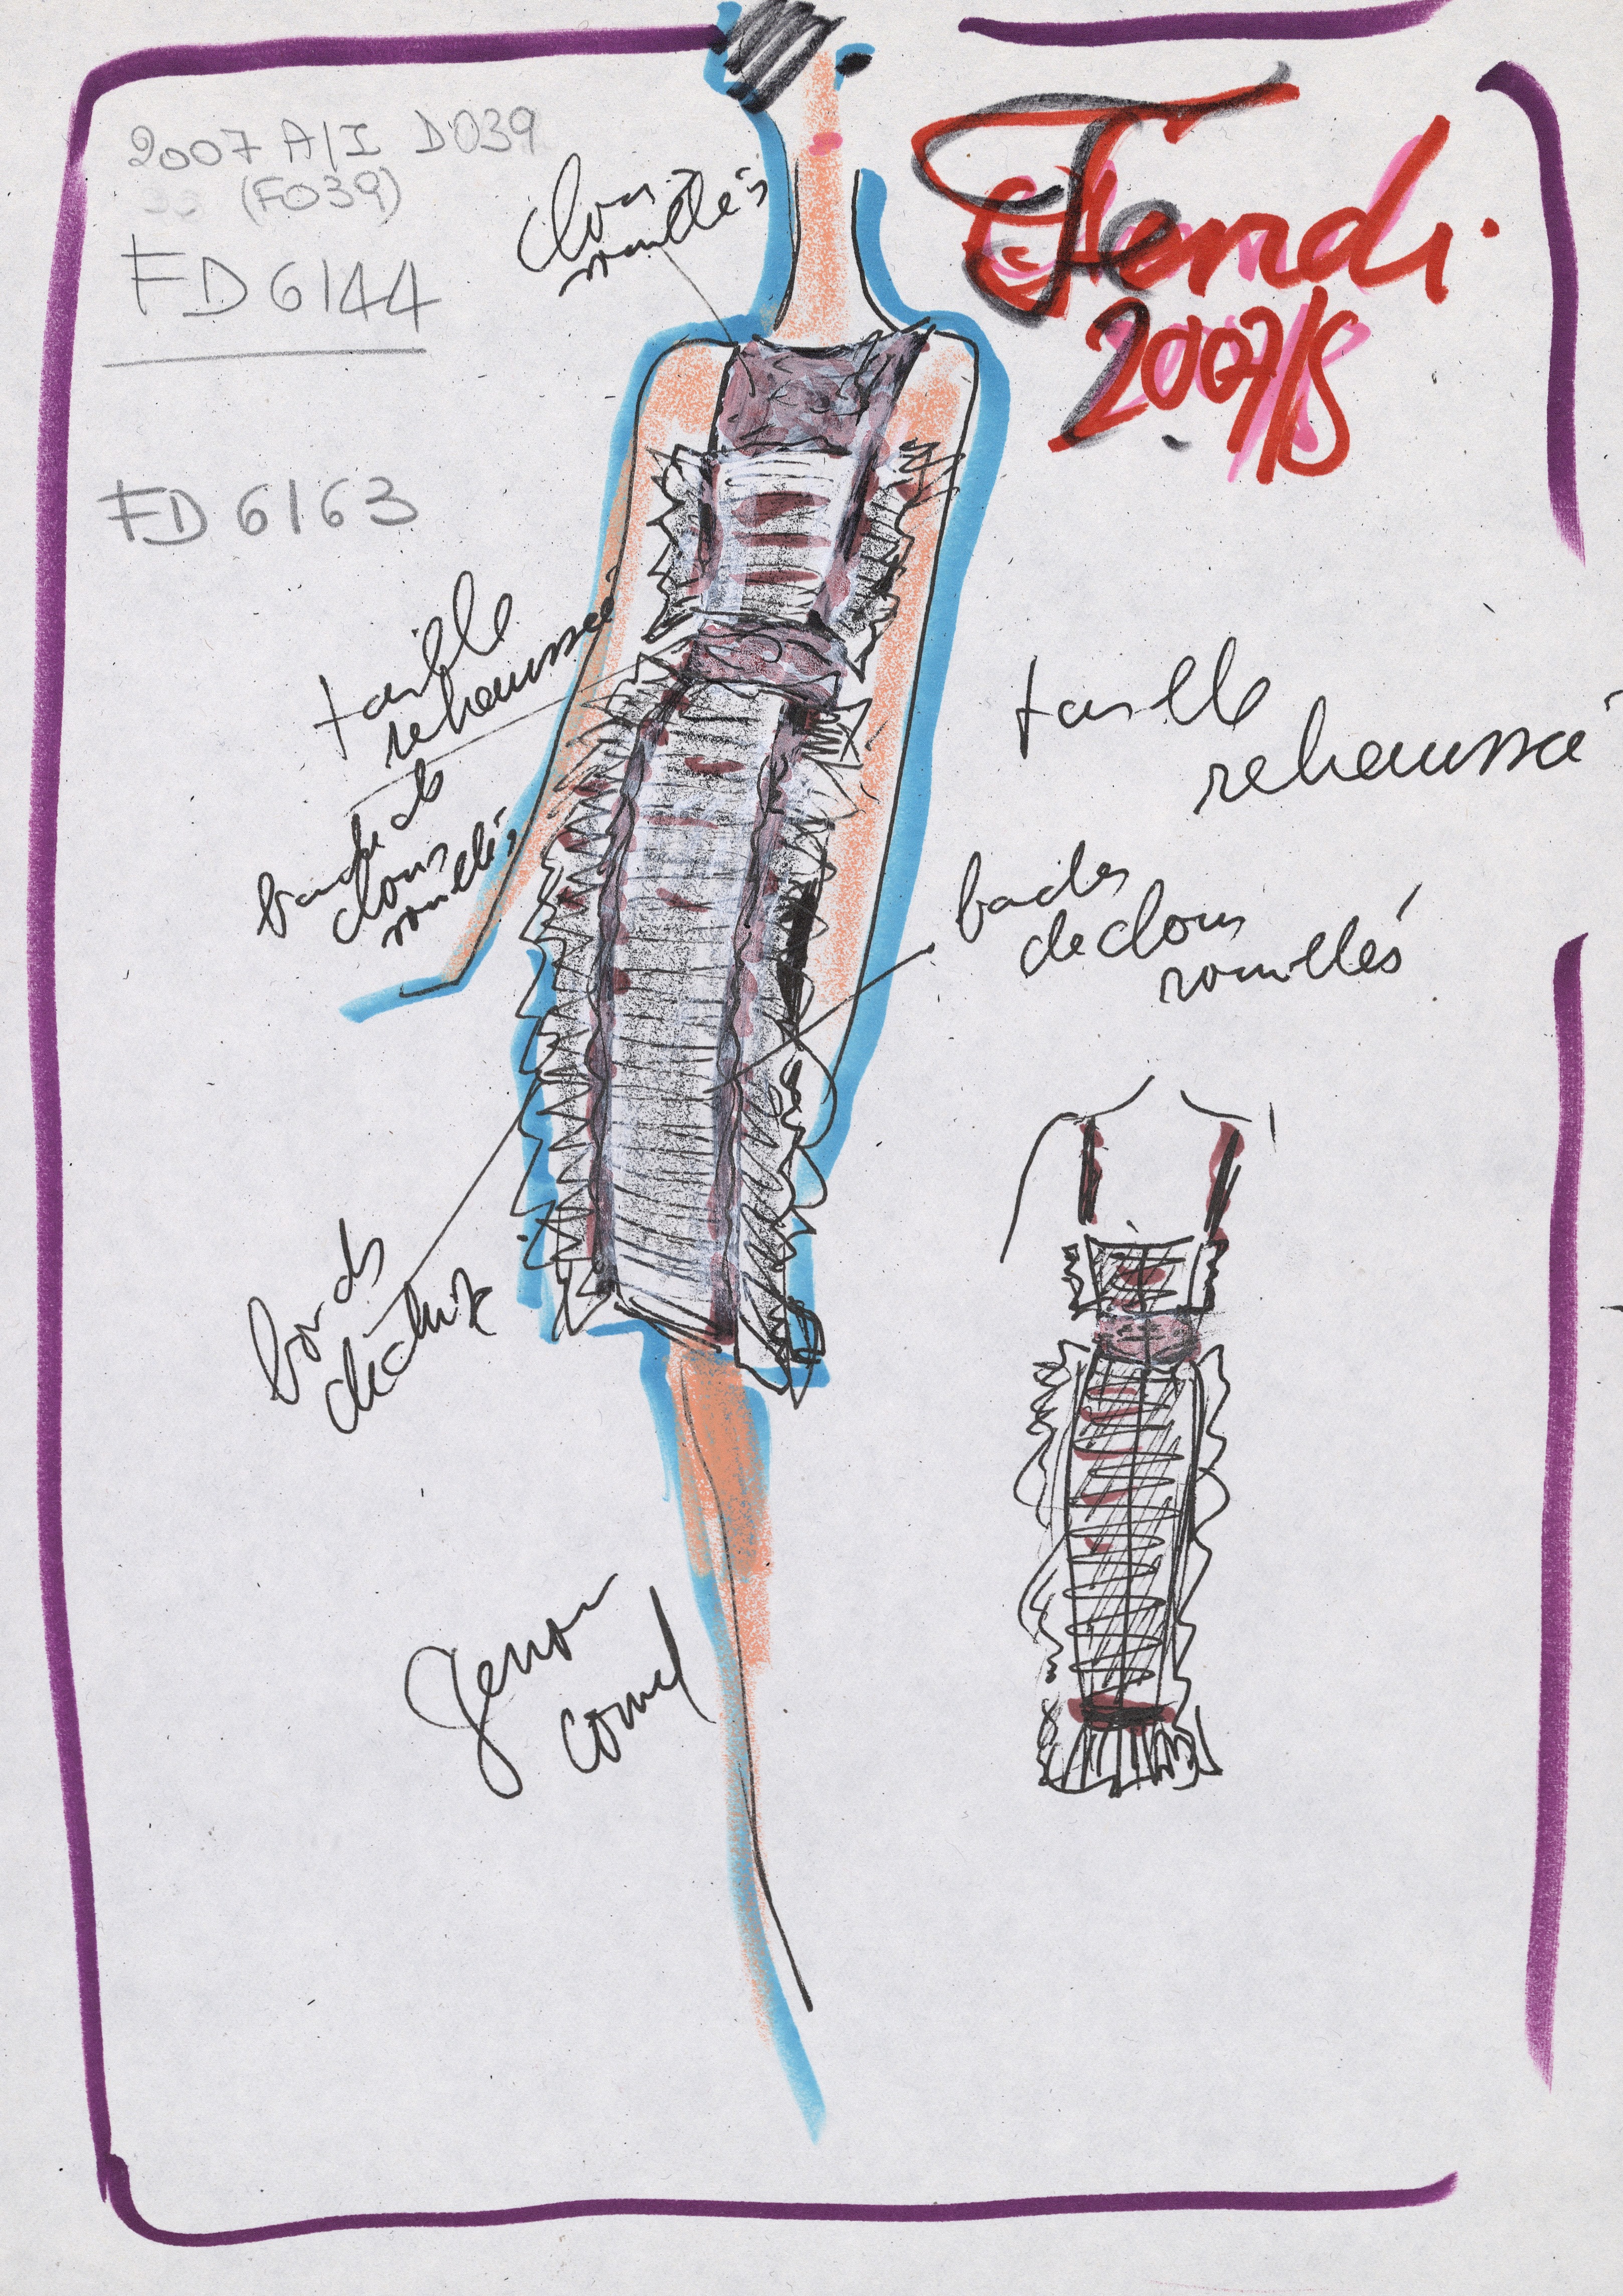 2007 A/I D039
(F039)
FD 6144
FD 6163
Fendi
2007/8
clous
rouillés
taille
rehaussé
bande de
clous
rouillés
taille
rehaussé
bades
de clous
rouillés
bords
genou